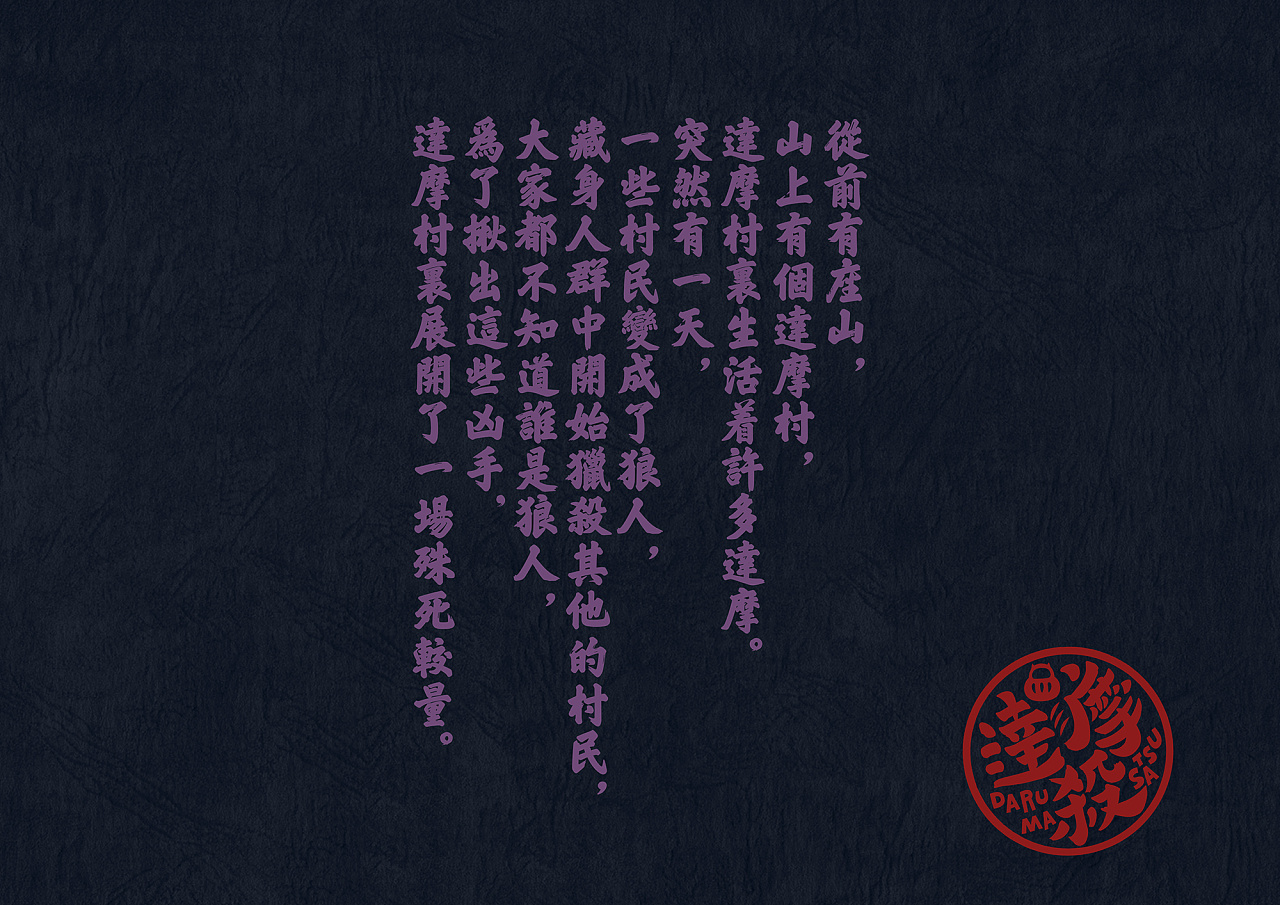 從前有座山，
山上有個達摩村，
達摩村裏生活着許多達摩。
突然有一天，
一些村民變成了狼人，
藏身人群中開始獵殺其他的村民，
大家都不知道誰是狼人，
為了揪出這些凶手，
達摩村裏展開了一場殊死較量。
達摩殺
DARUMA
SATSU